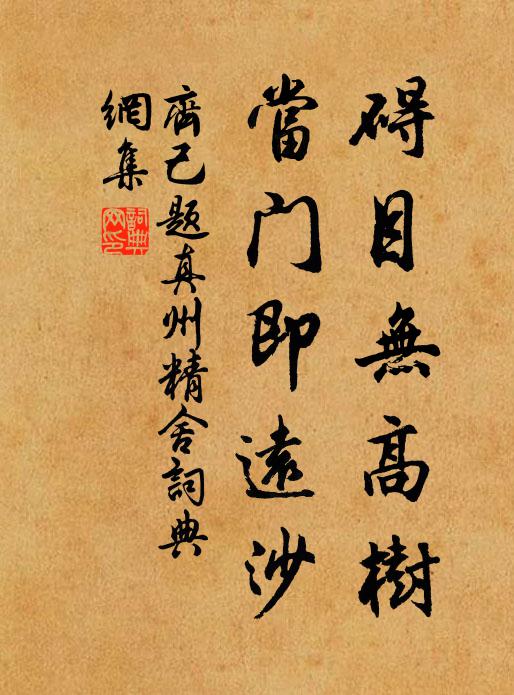 碍目無高樹
當門即遠沙
齊己题真州精舍詞典
網集
詞典網印